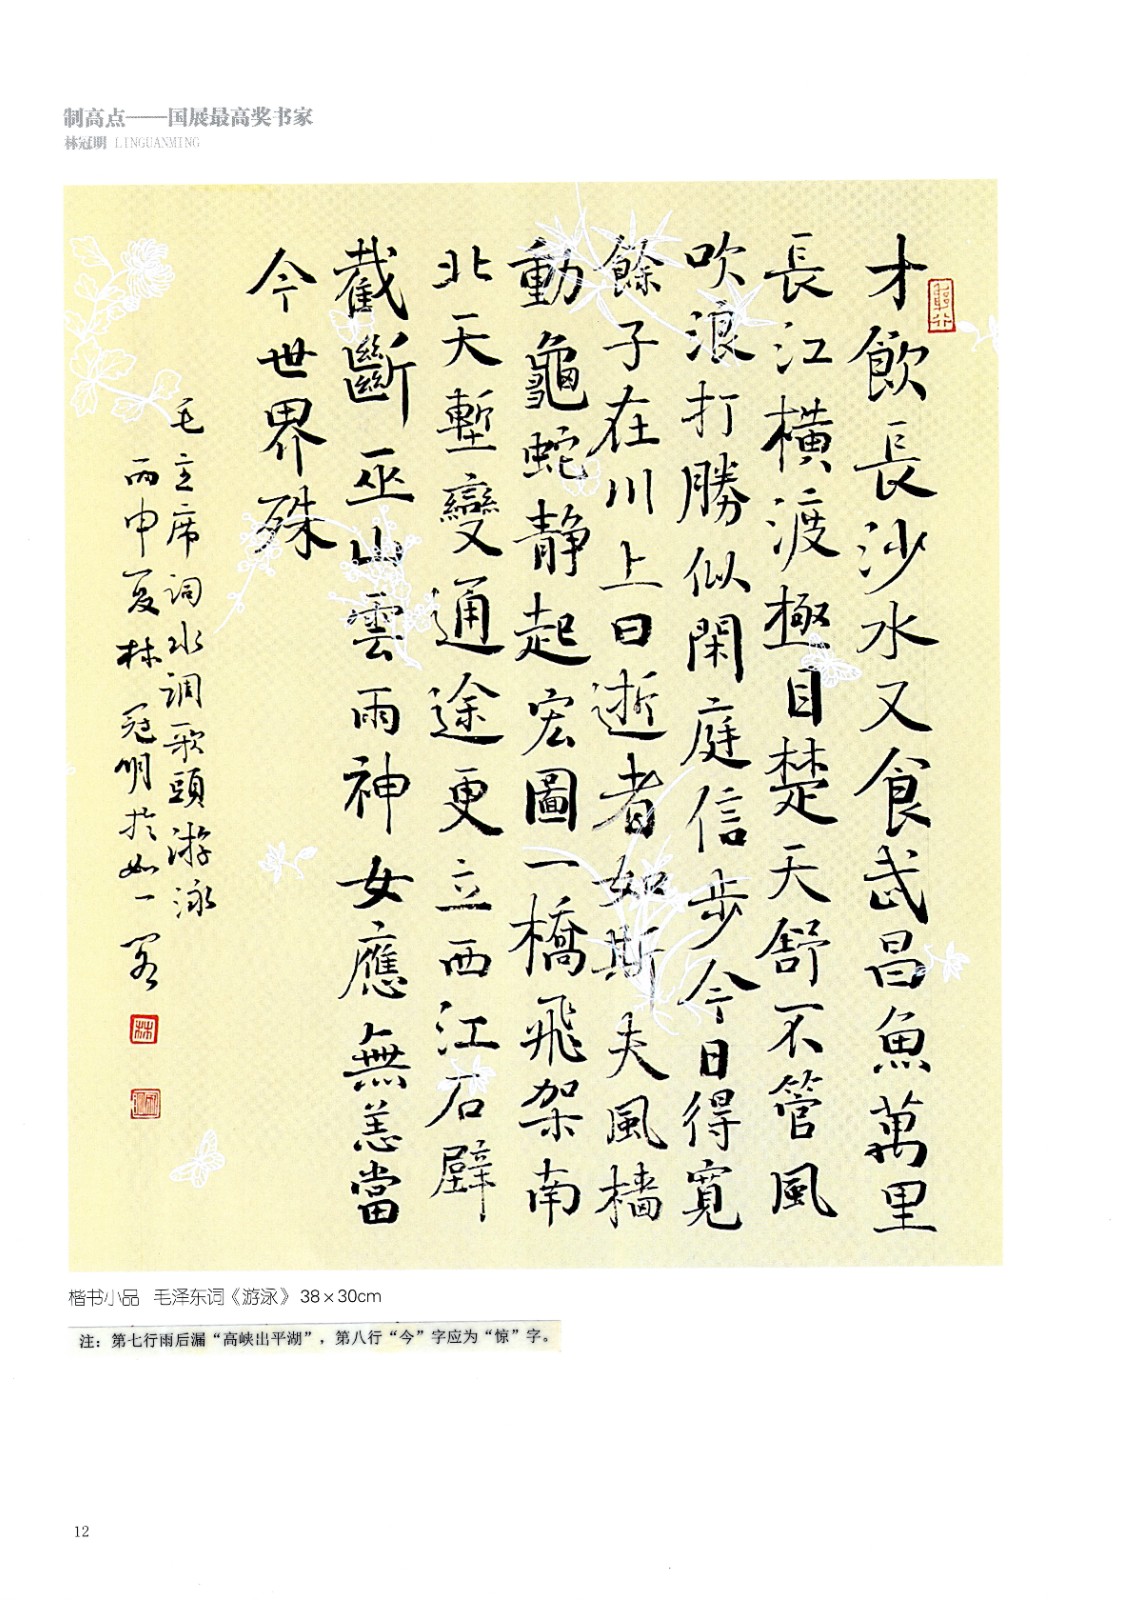 制高点——国展最高奖书家
林冠明 LINGUANMING
才飲長沙水又食武昌魚萬里
長江橫渡極目楚天舒不管風
吹浪打勝似閑庭信步今日得寬
餘子在川上曰逝者如斯夫風檣
動龜蛇静起宏圖一橋飛架南
北天塹變通途更立西江石壁
截斷巫山雲雨神女應無恙當
今世界殊
毛主席詞水調歌頭游泳
丙申夏林冠明於如一閣
林
楷书小品 毛泽东词《游泳》 38×30cm
注：第七行雨后漏“高峡出平湖”，第八行“今”字应为“惊”字。
12